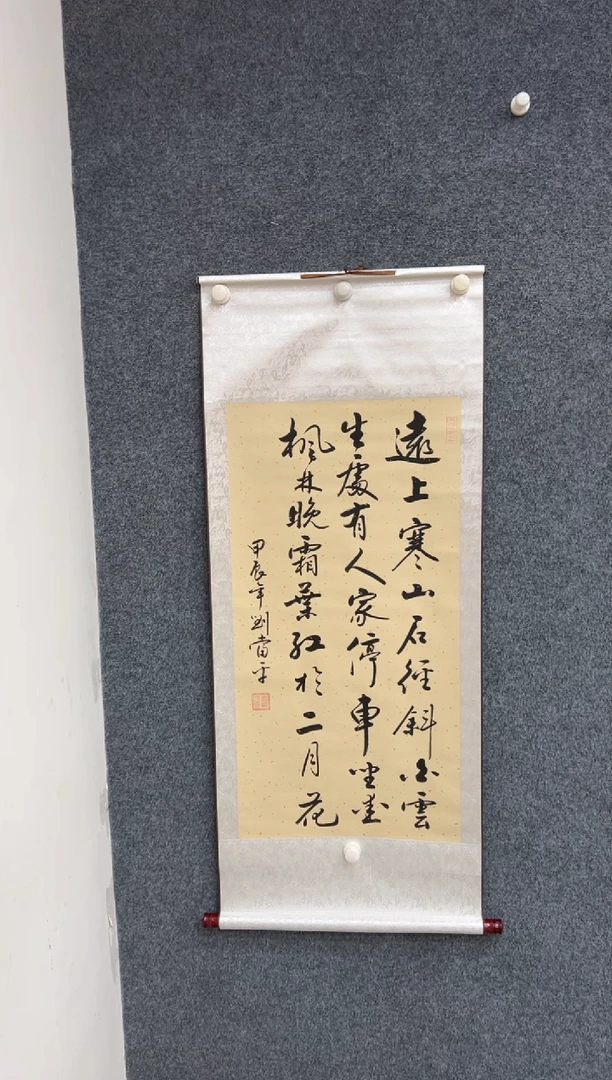 遠上寒山石徑斜白雲
生處有人家停車坐愛
楓林晚霜葉紅於二月花
甲辰年劉當平